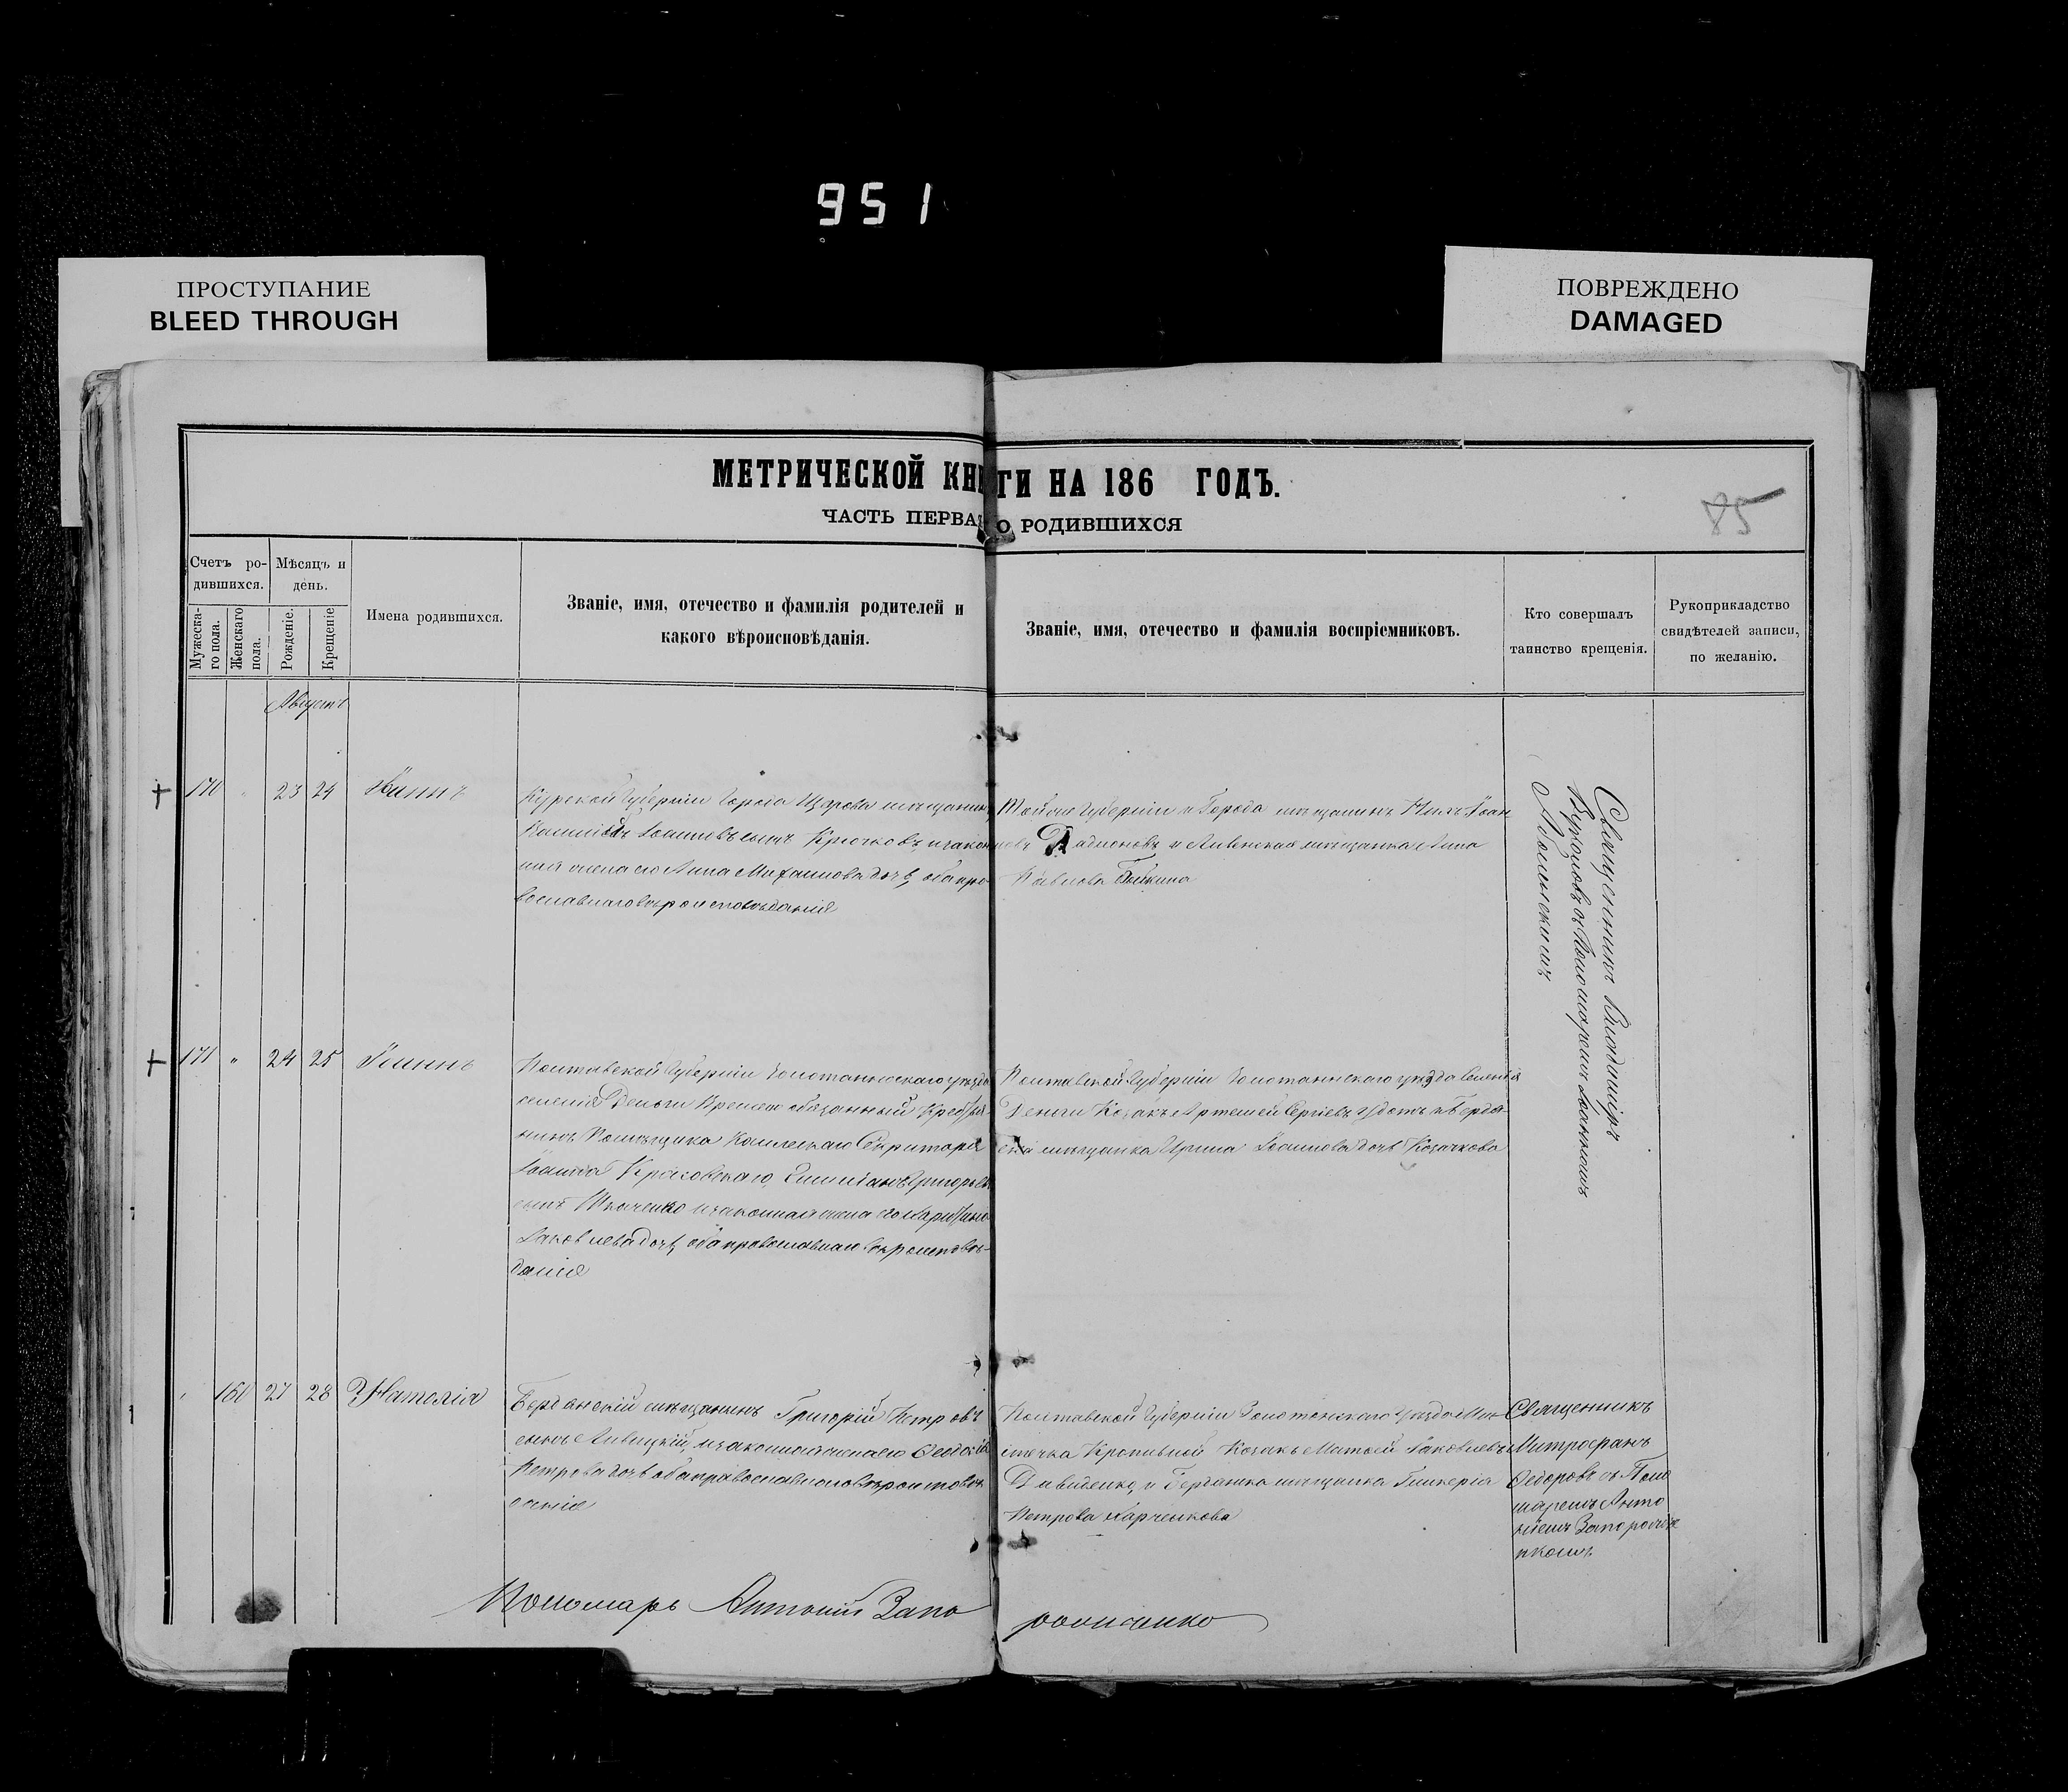 951
ПРОСТУПАНИЕ
BLEED THROUGH
ПОВРЕЖДЕНО
DAMAGED
МЕТРИЧЕСКОЙ КНИГИ НА 186 ГОДЪ.
ЧАСТЬ ПЕРВАЯ О РОДИВШИХСЯ
85
Счетъ ро-
дившихся.
Мѣсяцъ и
день.
Мужеска-
го пола.
Женскаго
пола.
Рожденіе.
Крещеніе
Имена родившихся.
Званіе, имя, отечество и фамилія родителей и
какого вѣроисповѣданія.
Званіе, имя, отечество и фамилія воспріемниковъ.
Кто совершалъ
таинство крещенія.
Рукоприкладство
свидѣтелей записи,
по желанію.
Августъ
170 23 24
Курской Губерніи Города Щигрова мѣщанинъ
Іоанновъ сынъ Крючковъ, и закон
ная жена его Анна Михаилова дочь, оба пра
вославнаго вѣроисповѣданія
Той же Губерніи и Города мѣщанинъ Іоан
новъ Радионовъ и Ливенская мѣщанка Анна
Павлова
Священникъ Владиміръ
съ Пономаремъ Іоанномъ
171 " 24 25 Іоаннъ
Полтавской Губерніи Золотоношскаго уѣзда
селенія Деньги Временно обязанный Крестья-
нинъ Помѣщика Коллежскаго Секритаря
Іоанна Красовскаго Григорьевъ
сынъ Ткаченко и законная жена его
Іаковлева дочь, оба православнаго вѣроисповѣ-
данія
Полтавской Губерніи Золотоношскаго уѣзда Селенія
Деньги Козакъ Артемей Сергіевъ и Бердян-
ска мѣщанка Ирина Іоаннова дочь Козачкова
160 27 28 Наталія
Бердянскій мѣщанинъ Григорій Петровъ
сынъ Ливицкій, и законная жена его Ѳеодосія
Петрова дочь оба православнаго вѣроисповѣ
данія
Полтавской Губерніи Золотоношскаго уѣзда Мѣ
стечка Кропивной Козакъ Матѳей Іаковлевъ
Давиденко, и Бердянска мѣщанка Гликерія
Петрова Харченкова
Священникъ
Митрофанъ
Ѳедоровъ съ Поно
маремъ Анто
ніемъ Запорож
Пономарь Антоній Запо рожченко